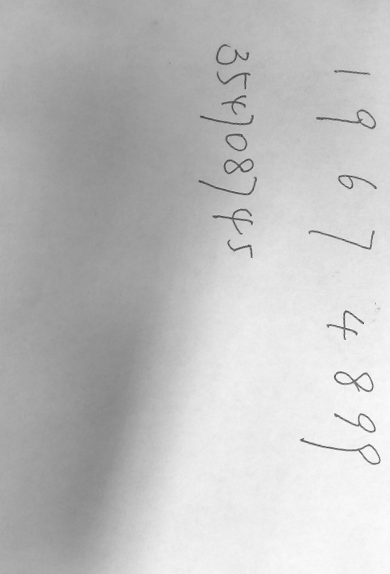 1 9 6 7 4 8 9 9
354708745